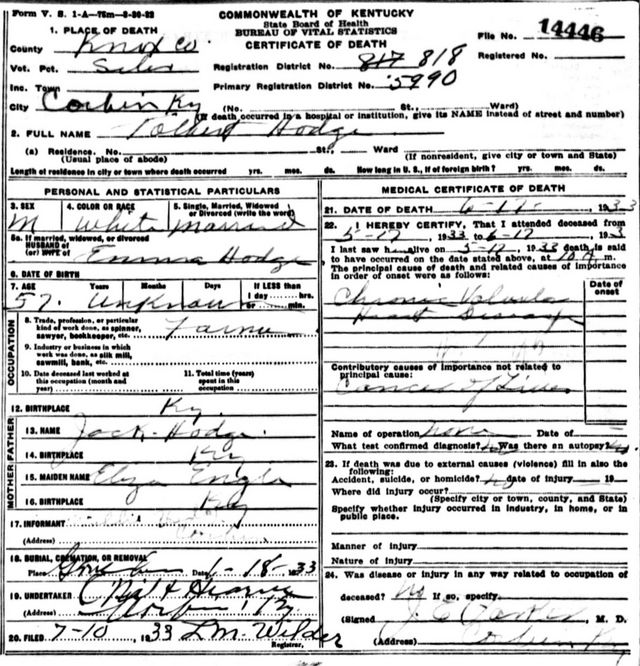 Form V. S. 1-A—75m—9-30-32
COMMONWEALTH OF KENTUCKY
State Board of Health
BUREAU OF VITAL STATISTICS
CERTIFICATE OF DEATH
File No. 14446
Registered No.
1. PLACE OF DEATH
County Knox Co.
Vot. Pct. Siler
Registration District No. 817 818
Inc. Town
Primary Registration District No. 5990
City Corbin Ky (No. St., Ward)
(If death occurred in a hospital or institution, give its NAME instead of street and number)
2. FULL NAME Tolbert Hodge
(a) Residence. No. St., Ward
(Usual place of abode) (If nonresident, give city or town and State)
Length of residence in city or town where death occurred yrs. mos. ds. How long in U. S., if of foreign birth? yrs. mos. ds.
PERSONAL AND STATISTICAL PARTICULARS
3. SEX 4. COLOR OR RACE 5. Single, Married, Widowed, or Divorced (write the word)
M White Married
5a. If married, widowed, or divorced
HUSBAND of
(or) WIFE of Emma Hodge
6. DATE OF BIRTH
7. AGE Years Months Days If LESS than
1 day hrs.
or min.
57. unknown
OCCUPATION
8. Trade, profession, or particular
kind of work done, as spinner,
sawyer, bookkeeper, etc. Farmer
9. Industry or business in which
work was done, as silk mill,
sawmill, bank, etc.
10. Date deceased last worked at
this occupation (month and
year)
11. Total time (years)
spent in this
occupation
12. BIRTHPLACE Ky.
FATHER
13. NAME Jack Hodge
14. BIRTHPLACE Ky
MOTHER
15. MAIDEN NAME Eliza Engle
16. BIRTHPLACE Ky
17. INFORMANT
(Address) Corbin
18. BURIAL, CREMATION, OR REMOVAL
Place Date 6-18-1933
19. UNDERTAKER
Corbin Ky
20. FILED 7-10, 1933 L.M. Wilder
Registrar.
MEDICAL CERTIFICATE OF DEATH
21. DATE OF DEATH 6-17- 1933
22. I HEREBY CERTIFY, That I attended deceased from
5-17, 1933 to 6-17, 193
I last saw h alive on 5-17, 1933 death is said
to have occurred on the date stated above, at 10 A m.
The principal cause of death and related causes of importance
in order of onset were as follows:
Date of
onset
Chronic Valvular
Heart Disease
Contributory causes of importance not related to
principal cause:
Cancer of Liver
Name of operation none Date of
What test confirmed diagnosis? Was there an autopsy? no
23. If death was due to external causes (violence) fill in also the
following:
Accident, suicide, or homicide? no date of injury 19
Where did injury occur?
(Specify city or town, county, and State)
Specify whether injury occurred in industry, in home, or in
public place.
Manner of injury
Nature of injury
24. Was disease or injury in any way related to occupation of
deceased? no If so, specify
(Signed) J. C. Parker, M. D.
(Address) Corbin Ky